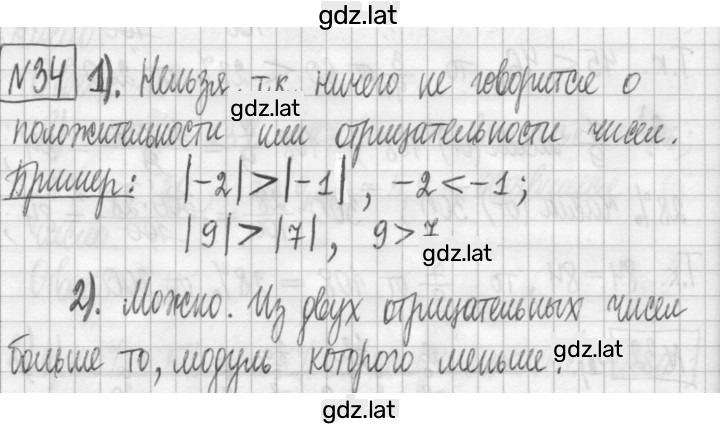 gdz.lat
№34 1). Нельзя, т.к. ничего не говорится о
gdz.lat
положительности или отрицательности чисел.
Пример: |-2|>|-1|, -2<-1;
|9|>|7|, 9>7
gdz.lat
2). Можно. Из двух отрицательных чисел
больше то, модуль которого меньше.
gdz.lat
gdz.lat